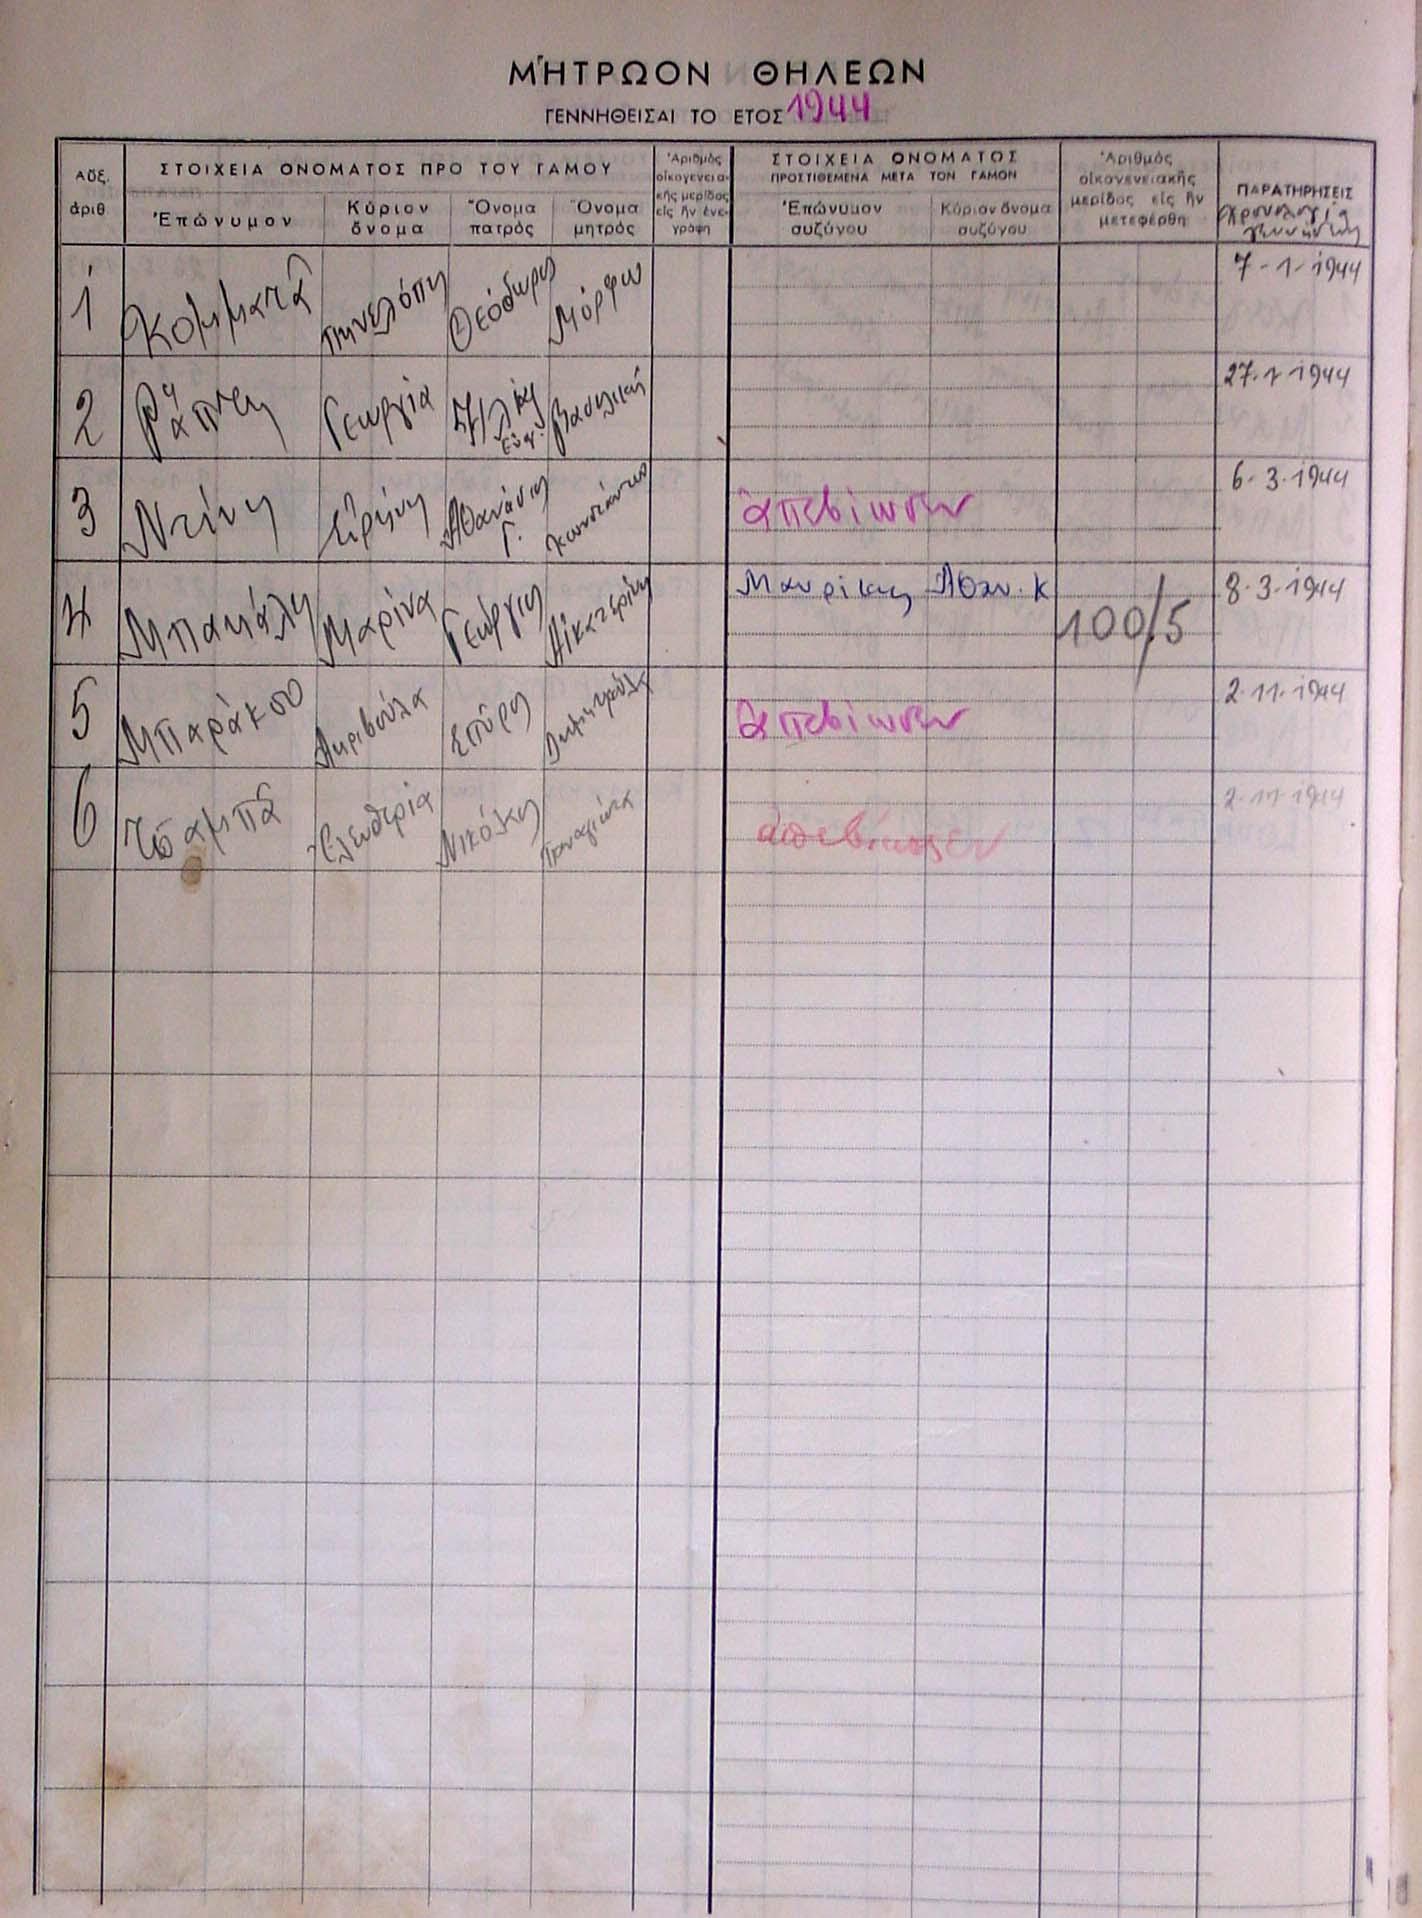 ΜΗΤΡΩΟΝ ΘΗΛΕΩΝ
ΓΕΝΝΗΘΕΙΣΑΙ ΤΟ ΕΤΟΣ 1944
Αὔξ. ἀριθ
ΣΤΟΙΧΕΙΑ ΟΝΟΜΑΤΟΣ ΠΡΟ ΤΟΥ ΓΑΜΟΥ
Ἐπώνυμον
Κύριον ὄνομα
Ὄνομα πατρός
Ὄνομα μητρός
Ἀριθμὸς οἰκογενειακῆς μερίδος εἰς ἣν ἐνεγράφη
ΣΤΟΙΧΕΙΑ ΟΝΟΜΑΤΟΣ
ΠΡΟΣΤΙΘΕΜΕΝΑ ΜΕΤΑ ΤΟΝ ΓΑΜΟΝ
Ἐπώνυμον συζύγου
Κύριον ὄνομα συζύγου
Ἀριθμὸς οἰκογενειακῆς μερίδος εἰς ἣν μετεφέρθη
ΠΑΡΑΤΗΡΗΣΕΙΣ
χρονολογία
γεννήσεως
1 Κομματᾶ Πηνελόπη Θεόδωρος Μόρφω 7-1-1944
2 Γεωργία Βασιλική 27.1-1944
3 Ντίνη Εἰρήνη Ἀθανάσιος Γ. Κωνστάντω ἀπεβίωσεν 6-3-1944
4 Μπακάλη Μαρίνα Γεώργιος Αἰκατερίνη Μαυρίκης Ἀθαν. Κ 100/5 8-3-1944
5 Μπαράκου Ἀκριβούλα Σπύρος Δημητρούλα ἀπεβίωσεν 2-11-1944
6 Τσαμπᾶ Ἐλευθερία Νικόλαος Παναγιώτα ἀπεβίωσεν 2-11-1944